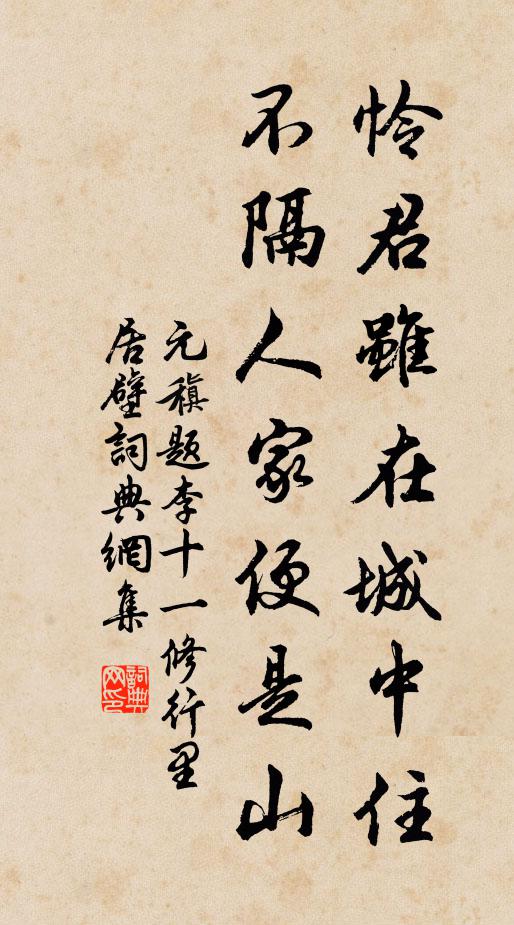 怜君雖在城中住
不隔人家便是山
元稹題李十一修行里
居壁詞典網集
詞典网印